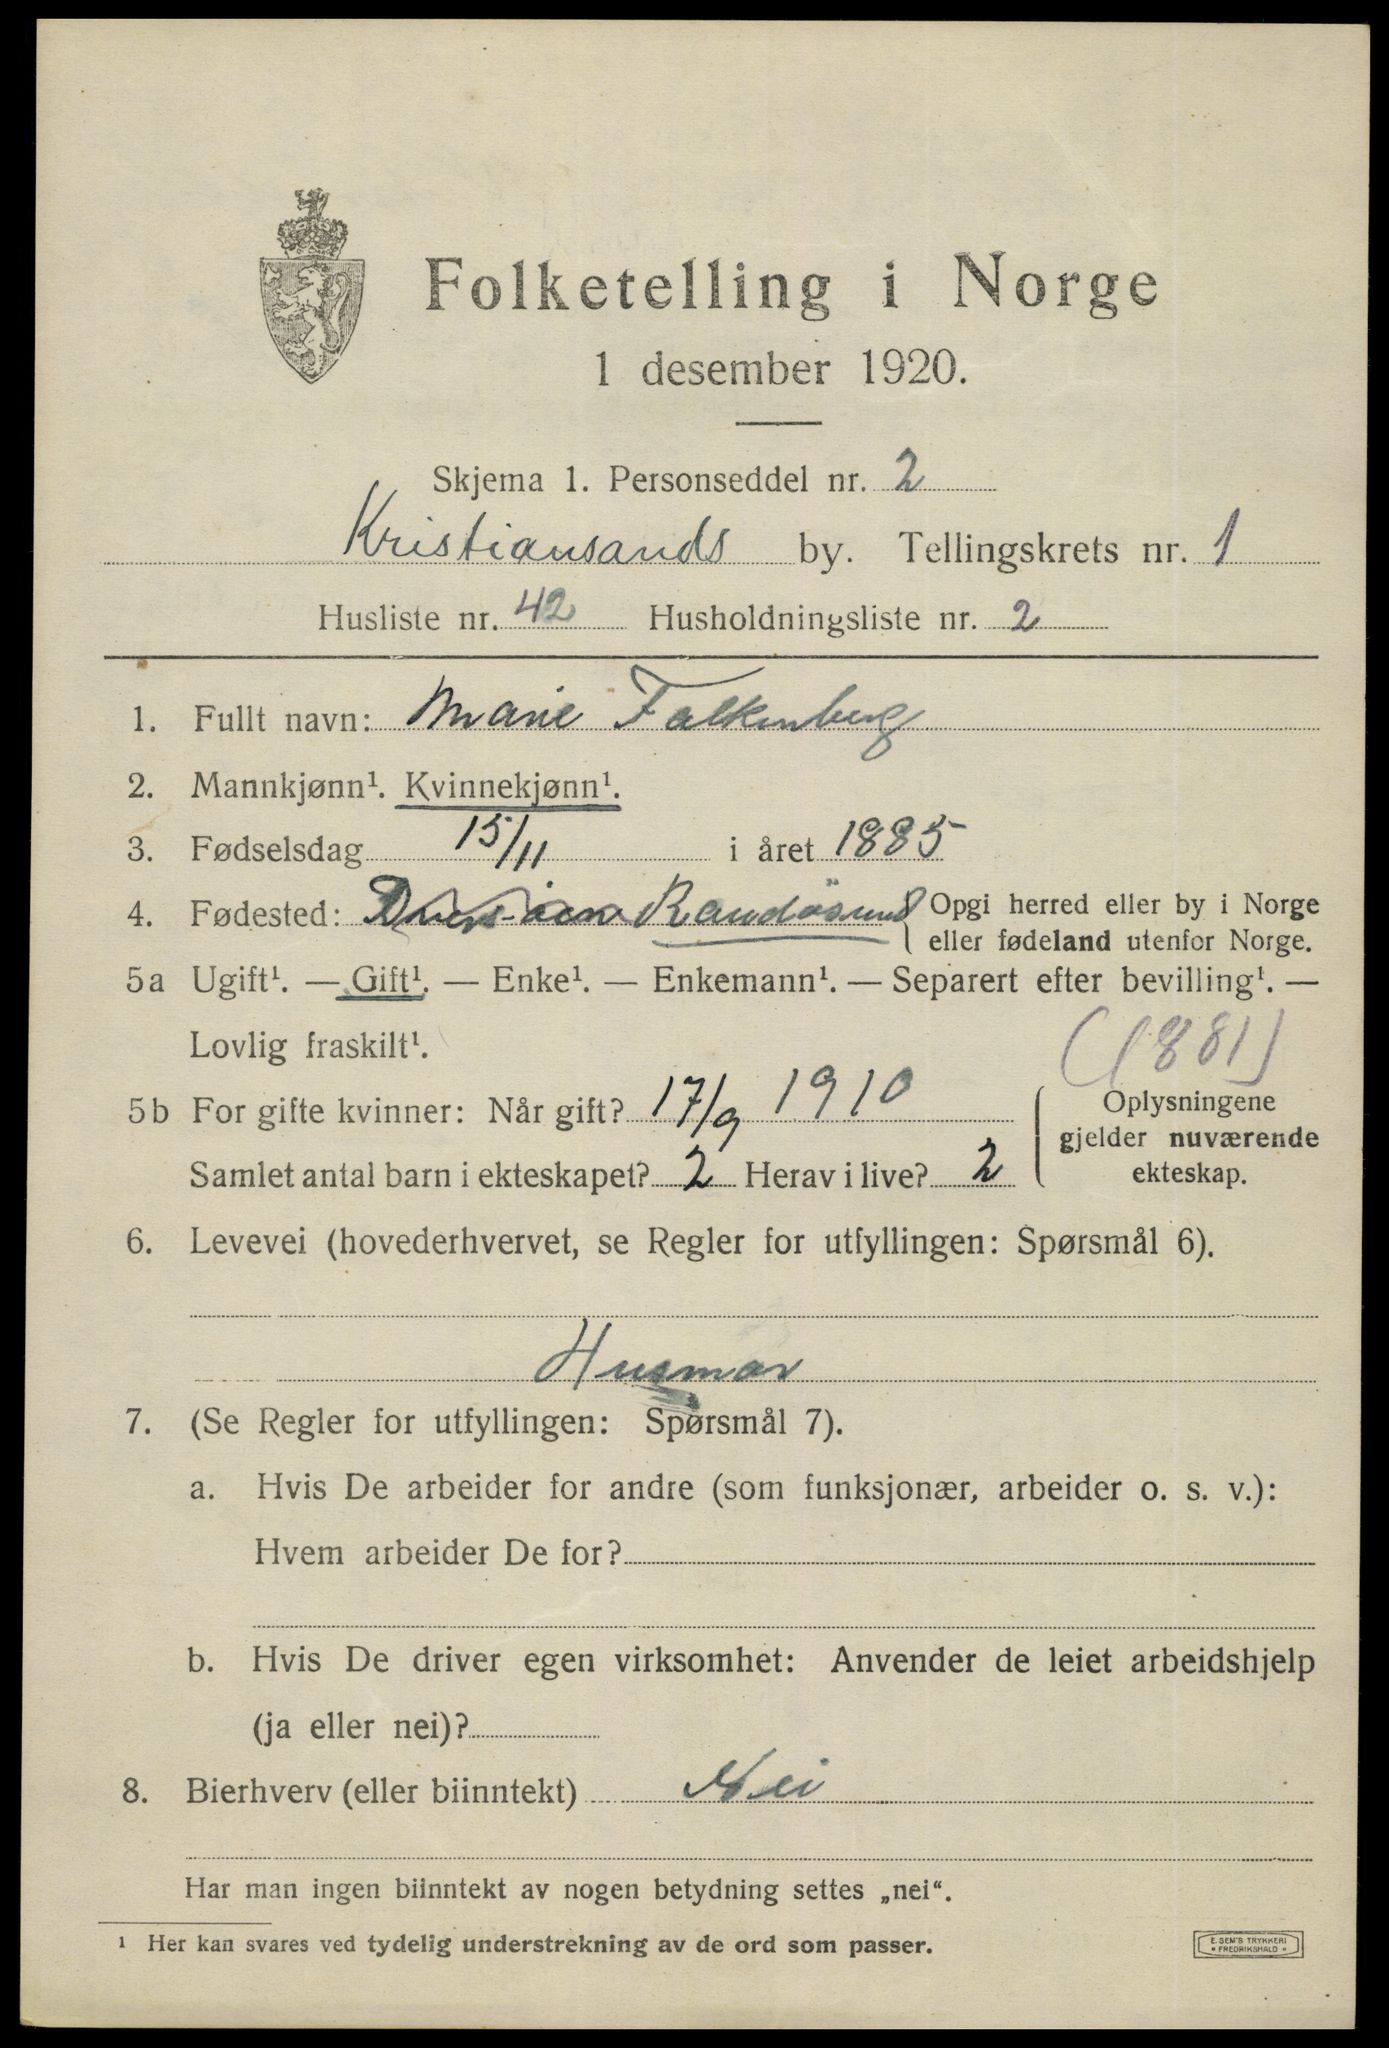 Folketelling i Norge
1 desember 1920.
Skjema 1. Personseddel nr. 2
Kristiansands by. Tellingskrets nr. 1
Husliste nr. 42 Husholdningsliste nr. 2
1. Fullt navn: Marie Falkenberg
2. Mannkjønn¹. Kvinnekjønn¹.
3. Fødselsdag 15/11 i året 1885
4. Fødested: Randøsund Opgi herred eller by i Norge
eller fødeland utenfor Norge.
5a Ugift¹. — Gift¹. — Enke¹. — Enkemann¹. — Separert efter bevilling¹. —
Lovlig fraskilt¹.
(1881)
5b For gifte kvinner: Når gift? 17/9 1910
Samlet antal barn i ekteskapet? 2 Herav i live? 2
Oplysningene
gjelder nuværende
ekteskap.
6. Levevei (hovederhvervet, se Regler for utfyllingen: Spørsmål 6).
Husmor
7. (Se Regler for utfyllingen: Spørsmål 7).
a. Hvis De arbeider for andre (som funksjonær, arbeider o. s. v.):
Hvem arbeider De for?
b. Hvis De driver egen virksomhet: Anvender de leiet arbeidshjelp
(ja eller nei)?
8. Bierhverv (eller biinntekt) Nei
Har man ingen biinntekt av nogen betydning settes „nei“.
¹ Her kan svares ved tydelig understrekning av de ord som passer.
E. SEM'S TRYKKERI
• FREDRIKSHALD •